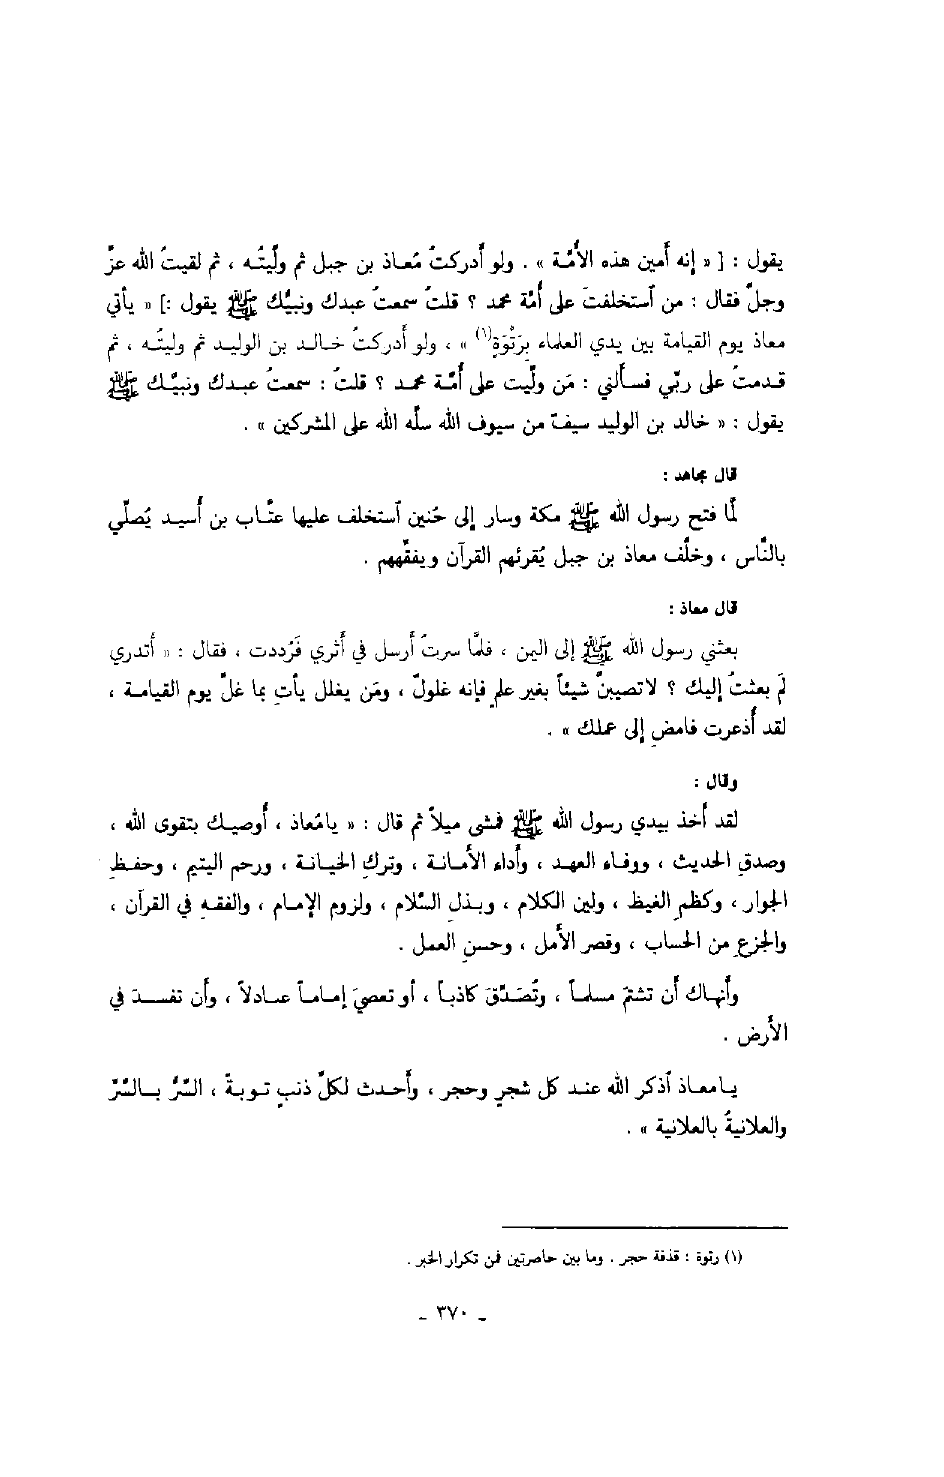 يقول : [ « إنه أمين هذه الأُمّة » . ولو أَدركتُ مُعاذ بن جبل ثم ولَّيتُه ، ثم لقيتُ الله عزَّ
وجلَّ فقال : من ٱستخلفتَ على أُمّة محمد ؟ قلتُ سمعتُ عبدك ونبيَّك ﷺ يقول :] « يأتي
معاذ يوم القيامة بين يدي العلماء بِرَتْوَةٍ(١) » ، ولو أَدركتُ خالد بن الوليد ثم وليتُه ، ثم
قدمتُ على ربّي فسألني : مَن ولَّيت على أُمّة محمد ؟ قلتُ : سمعتُ عبدك ونبيَّك ﷺ
يقول : « خالد بن الوليد سيفٌ من سيوف الله سلَّه الله على المشركين » .
قال مجاهد :
لمّا فتح رسول الله ﷺ مكة وسار إلى حُنين ٱستخلف عليها عتَّاب بن أَسيد يُصلّي
بالنَّاس ، وخلَّف معاذ بن جبل يُقرئهم القرآن ويفقِّههم .
قال معاذ :
بعثني رسول الله ﷺ إلى اليمن ، فلمَّا سرتُ أَرسل في أَثري فَرُددت ، فقال : « أَتدري
لمَ بعثتُ إليك ؟ لاتصيبنَّ شيئاً بغير علمٍ فإنه غلولٌ ، ومَن يغلل يأتِ بما غلَّ يوم القيامة ،
لقد أُذعرت فامضِ إلى عملك » .
وقال :
لقد أَخذ بيدي رسول الله ﷺ فمشى ميلاً ثم قال : « يامُعاذ ، أُوصيك بتقوى الله ،
وصدقِ الحديث ، ووفاء العهد ، وأَداء الأَمانة ، وتركِ الخيانة ، ورحم اليتيم ، وحفظِ
الجوار ، وكظمِ الغيظ ، ولين الكلام ، وبذلِ السَّلام ، ولزوم الإمام ، والفقهِ في القرآن ،
والجزعِ من الحساب ، وقصر الأَمل ، وحسنِ العمل .
وأَنهاك أَن تشتمَ مسلماً ، وتُصَدِّقَ كاذباً ، أو تعصيَ إماماً عادلاً ، وأَن تفسدَ في
الأَرض .
يامعاذ ٱذكر الله عند كل شجرٍ وحجر ، وأَحدث لكلِّ ذنبٍ توبةً ، السِّرُّ بالسِّرِّ
والعلانيةُ بالعلانية » .
(١) رتوة : قذفة حجر . وما بين حاصرتين فمن تكرار الخبر .
ـ ٣٧٠ ـ